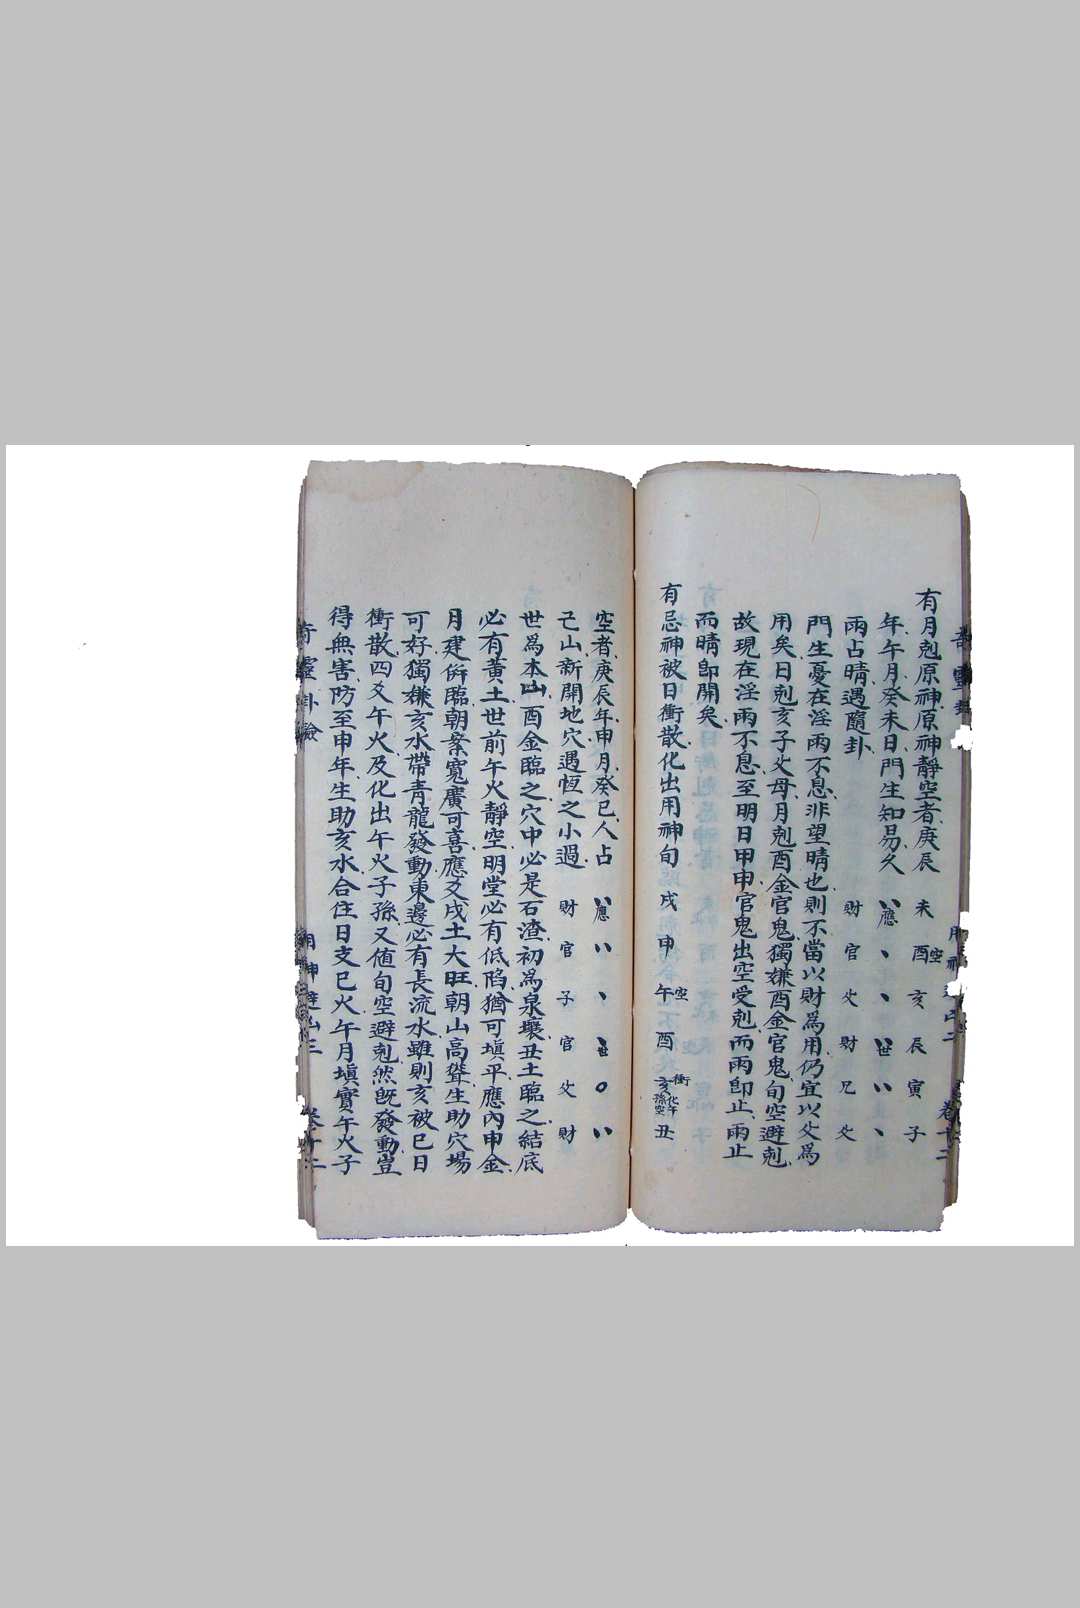 有月剋原神原神靜空者庚辰 未 酉空 亥 辰 寅 子
年午月癸未日門生知易久 應 世
雨占晴遇隨卦 財 官 父 財 兄 父
門生憂在淫雨不息非望晴也則不當以財為用仍宜以父為
用矣日剋亥子父母月剋酉金官鬼獨嫌酉金官鬼旬空避剋
故現在淫雨不息至明日甲申官鬼出空受剋而雨即止雨止
而晴即開矣
有忌神被日衝散化出用神旬 戌 申 午空 酉 亥衝化午孫空 丑
空者庚辰年申月癸巳人占 應 世
乙山新開地穴遇恆之小過 財 官 子 官 父 財
世為本山酉金臨之穴中必是石渣初為泉壤丑土臨之結底
必有黃土世前午火靜空明堂必有低陷猶可填平應內申金
月建併臨朝案寬廣可喜應爻戌土大旺朝山高聳生助穴場
可好獨嫌亥水帶青龍發動東邊必有長流水雖則亥被巳日
衝散四爻午火及化出午火子孫又值旬空避剋然既發動豈
得無害防至申年生助亥水合住日支巳火午月填實午火子
奇靈卦驗 用神避 三 卷十二